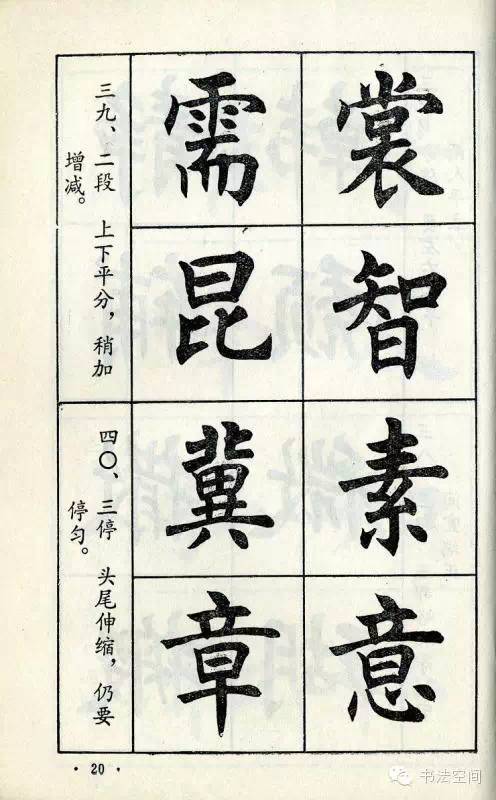 三九、二段 上下平分，稍加
增减。
裳 需
智 昆
四〇、三停 头尾伸缩，仍要
停匀。
素 冀
意 章
·20·
书法空间